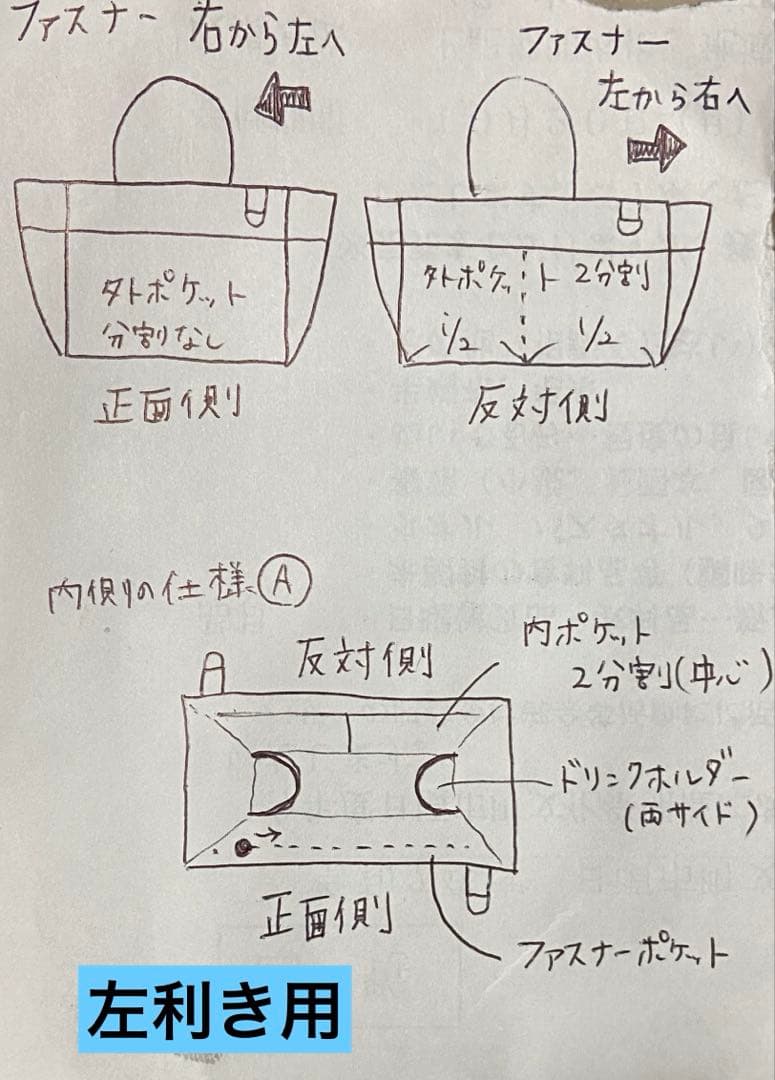 ファスナー 右から左へ
ファスナー
左から右へ
外トポケット
分割なし
正面側
外トポケット 2分割
1/2 1/2
反対側
内側の仕様 A
反対側
内ポケット
2分割(中心)
ドリンクホルダー
(両サイド)
正面側
ファスナーポケット
左利き用